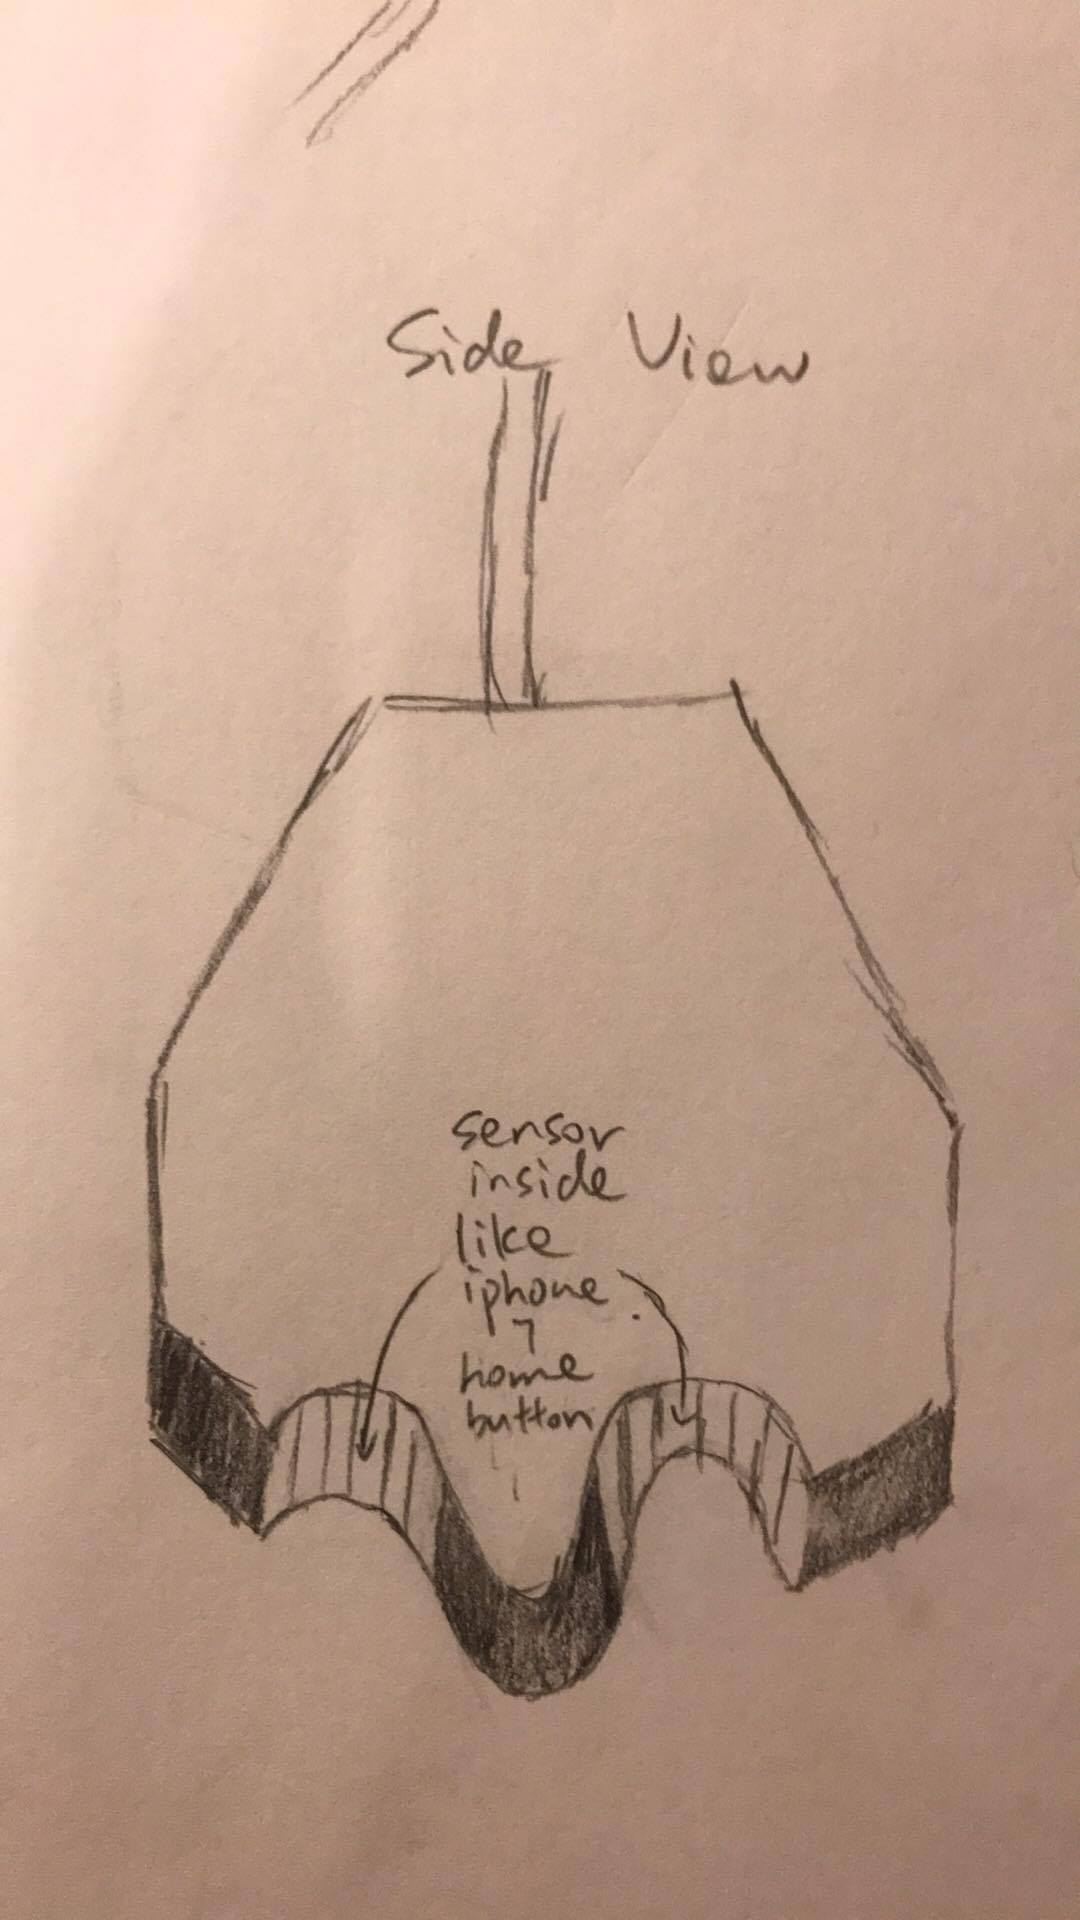 Side View
sensor
inside
like
iphone
7
home
button